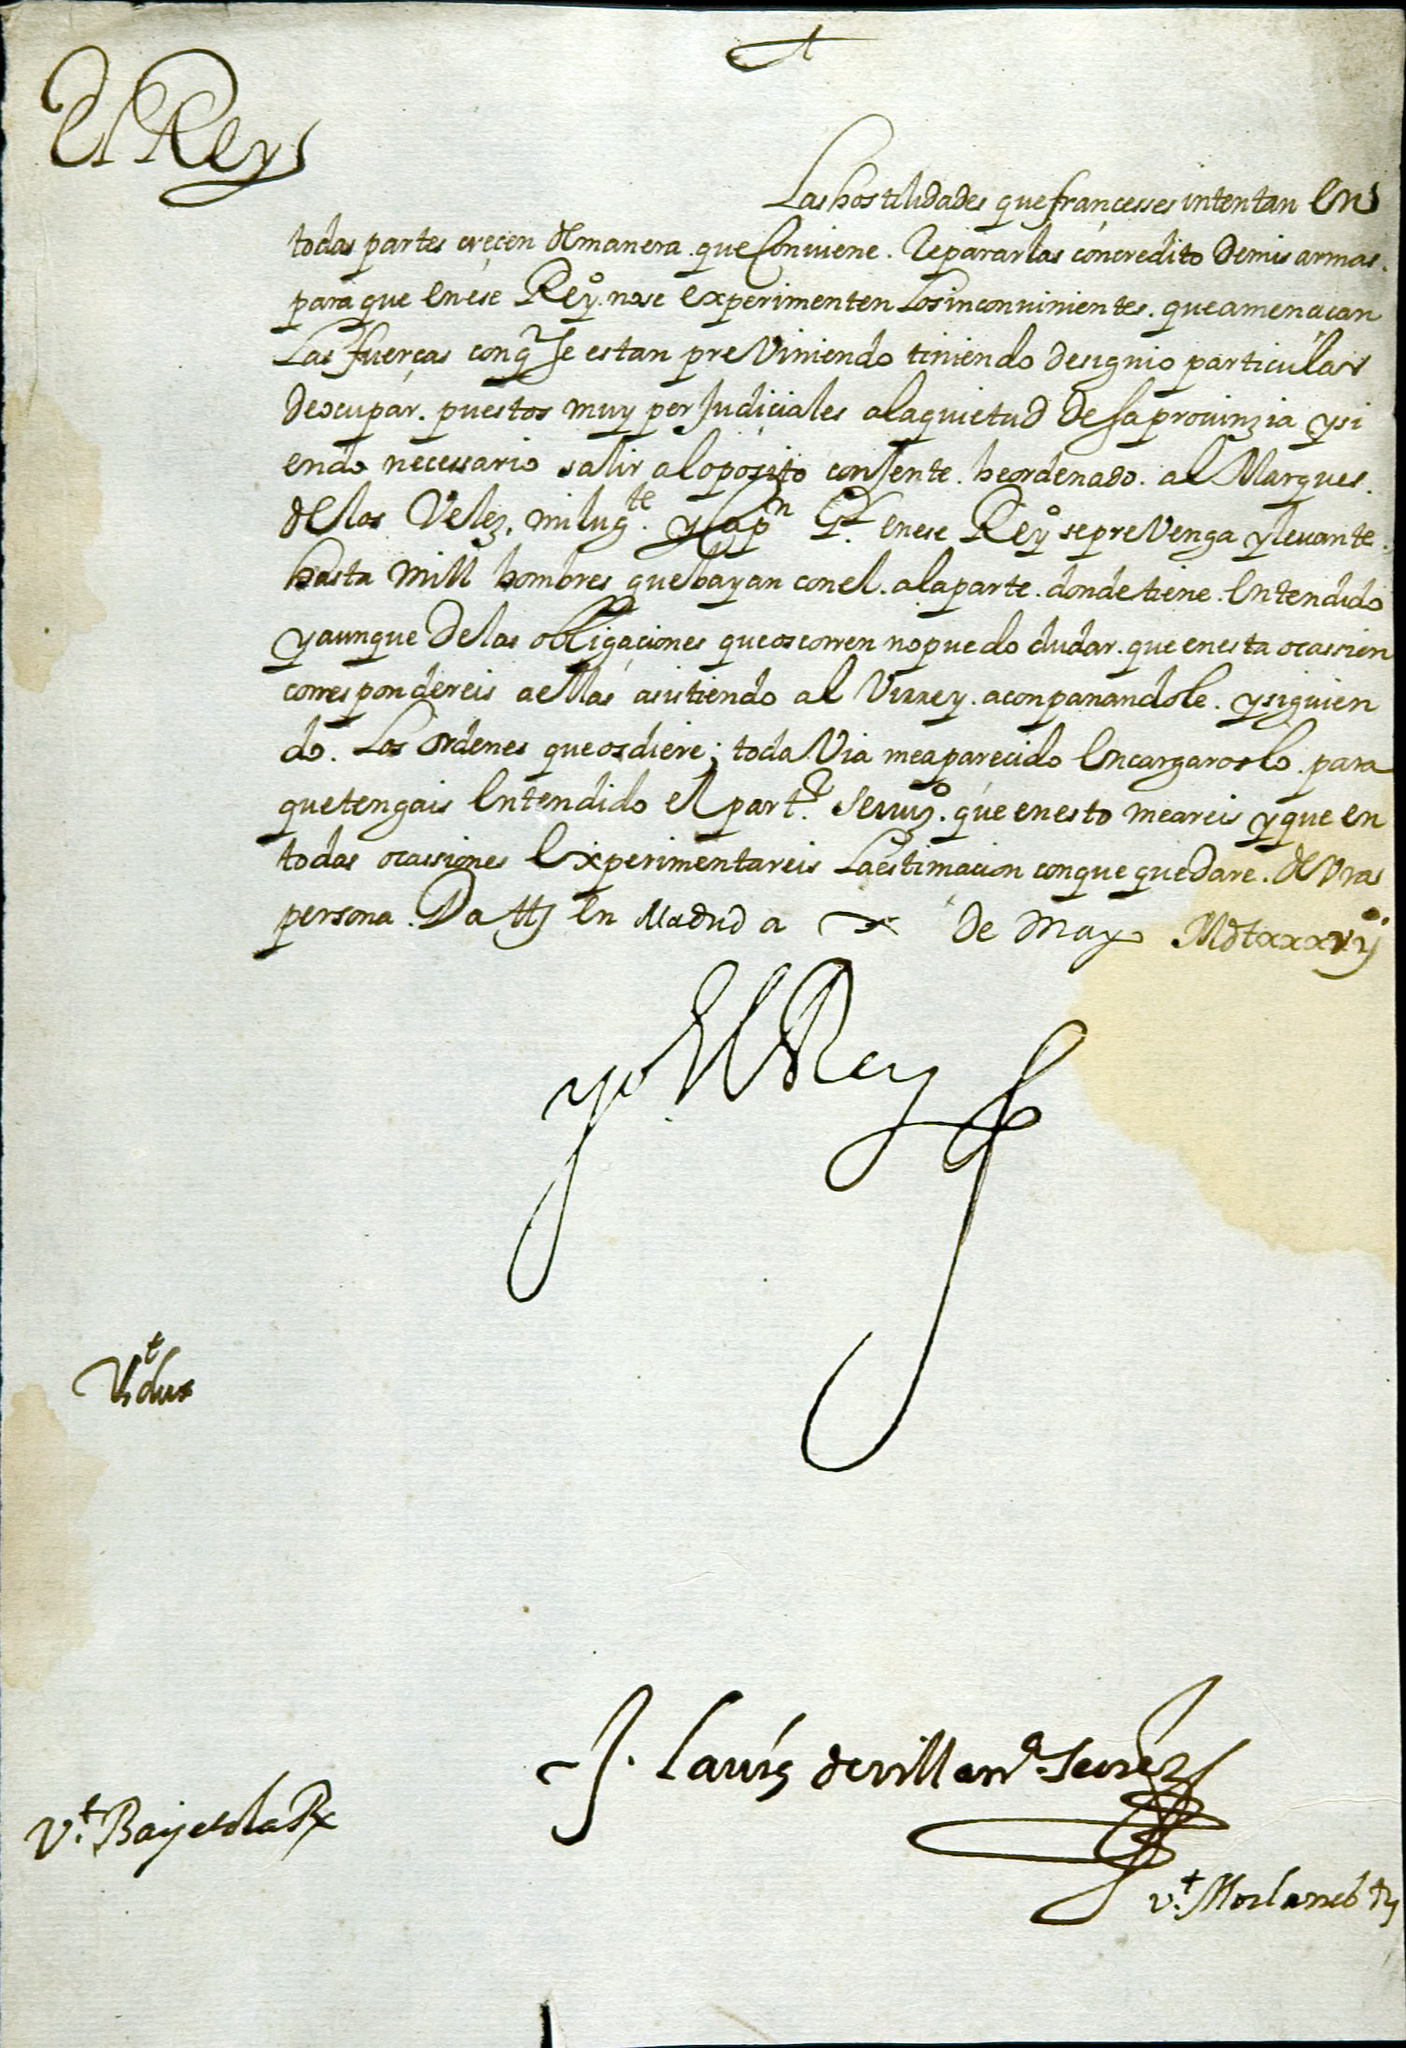 El Rey
Las hostilidades que francesses intentan en
todas partes creçen de manera que conuiene. Repararlas con credito de mis armas.
para que en ese Rey.º no se experimenten los inconuinientes. que amenaçan
Las fuerças con q̃ se estan preViniendo tiniendo designio particular
de ocupar. puestos muy perJudiçiales a la quietud desa prouinzia y si
endo necessario salir al oposito con Jente. he ordenado. al Marques.
de los Velez. mi lugte. y Capn Gl. en ese Rey.º se preVenga y leuante.
hasta mill hombres que bayan con el. a la parte. donde tiene. entendido
y aunque de las obligaçiones que os corren no puedo dudar. que en esta ocassion
correspondereis a ellas asistiendo al Virrey. aconpanandole. y siguien
do. Los ordenes que os diere; toda Via me a parecido encargaroslo. para
que tengais entendido el part.r seruiz.º que en esto me areis y que en
todas ocassiones experimentareis la estimacion con que quedare. de vra
persona. Datt en Madrid a x de Mayo MDCxxxvij
yo el Rey
Vt dux
J. Laurs de Villana. Secrs
Vt. Bayetola Rx
Vt. Morlanes